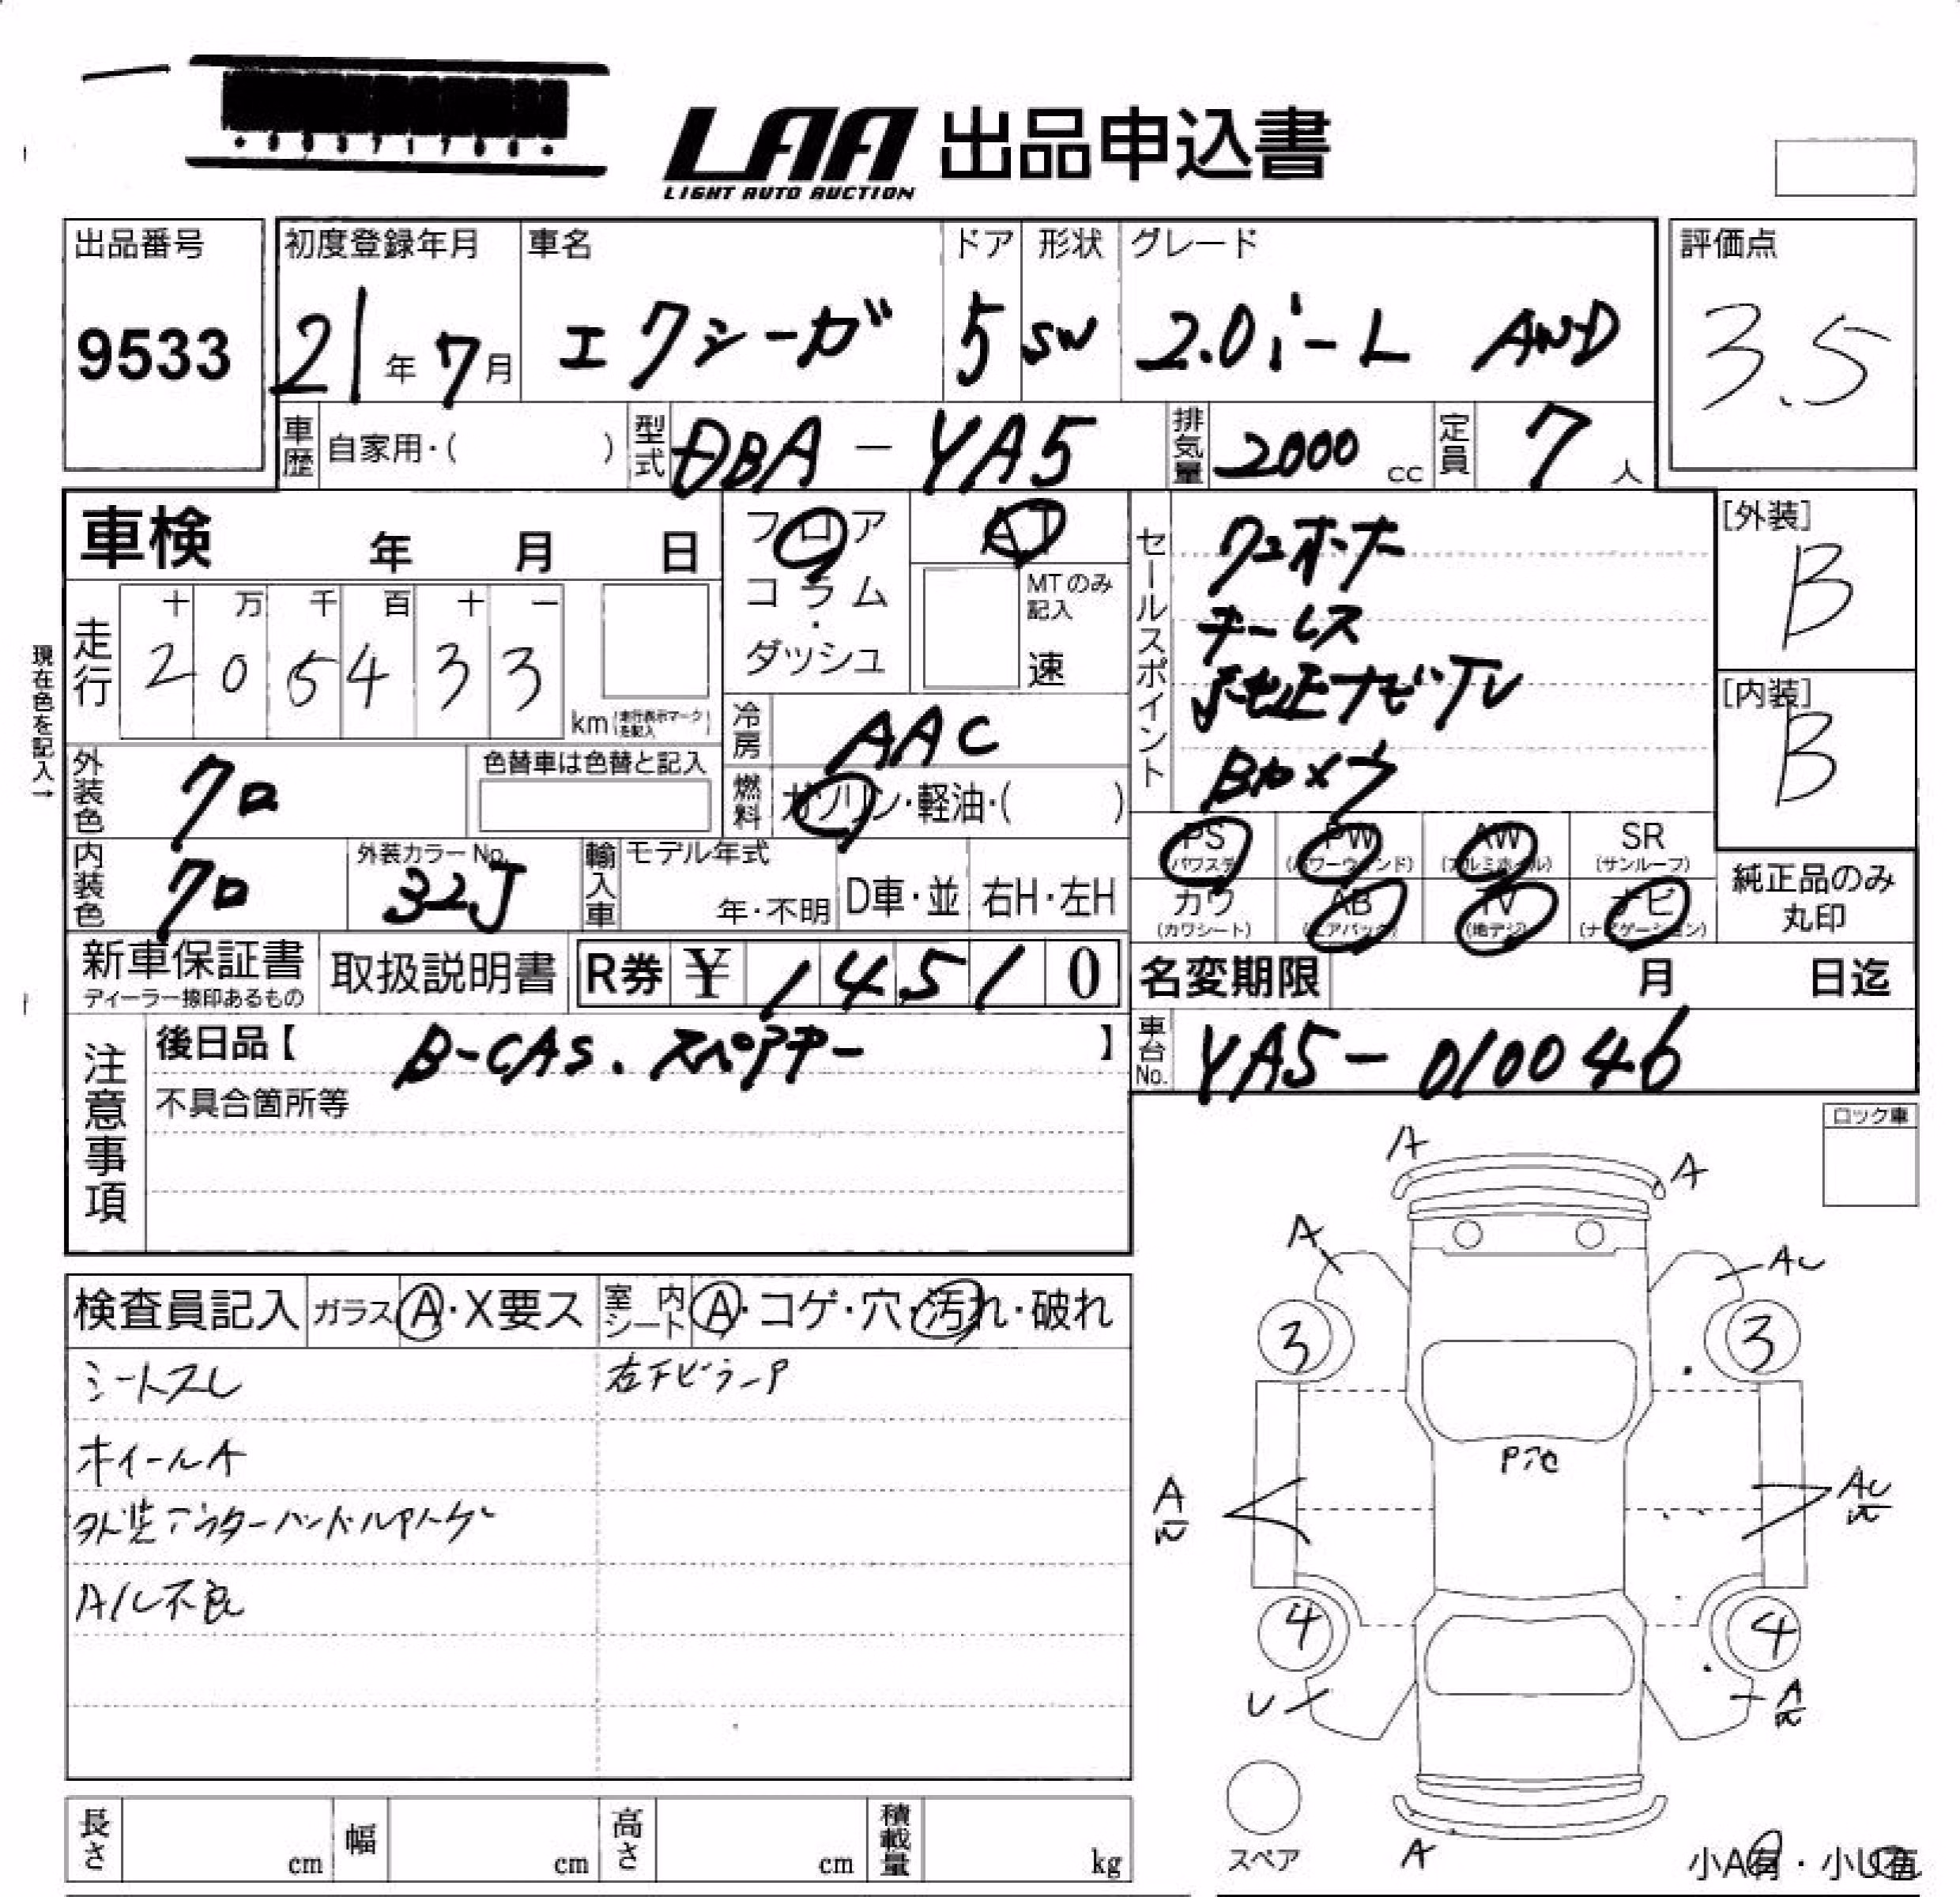 LAA 出品申込書
LIGHT AUTO AUCTION
出品番号 初度登録年月 車名 ドア 形状 グレード 評価点
9533 21年 7月 エクシーガ 5 SW 2.0i-L AWD 3.5
車歴 自家用・( ) 型式 DBA-YA5 排気量 2000 cc 定員 7人
車検 年 月 日
フロア AT
コラム・ MTのみ記入
ダッシュ 速
セールスポイント
ワンオーナー
キーレス
純正ナビTV
Bカメラ
[外装] B
[内装] B
現在色を記入→
走行 十 万 千 百 十 一
2 0 5 4 3 3 km (走行表示マークを記入)
冷房 AAC
外装色 クロ 色替車は色替と記入
燃料 ガソリン・軽油・( )
PS (パワステ) PW (パワーウィンド) AW (アルミホイル) SR (サンルーフ)
カワ (カワシート) AB (エアバック) TV (地デジ) ナビ (ナビゲーション)
純正品のみ
丸印
内装色 クロ 外装カラーNo. 32J 輸入車 モデル年式 年・不明 D車・並 右H・左H
新車保証書 ディーラー捺印あるもの 取扱説明書 R券 ¥ 14510
名変期限 月 日迄
注意事項 後日品【 B-CAS. スペアキー 】
車台No. YA5-010046
不具合箇所等
ロック車
検査員記入 ガラス A・X要ス 室内シート A・コゲ・穴・汚れ・破れ
シートスレ 右下ピラーP
ホイールA
外装アウターハンドルアトヅケ
A/C不良
A
A
A
AU
3 3
P穴
A
AU
4 4
U
A
A
スペア
小A有・小U
長さ cm 幅 cm 高さ cm 積載量 kg